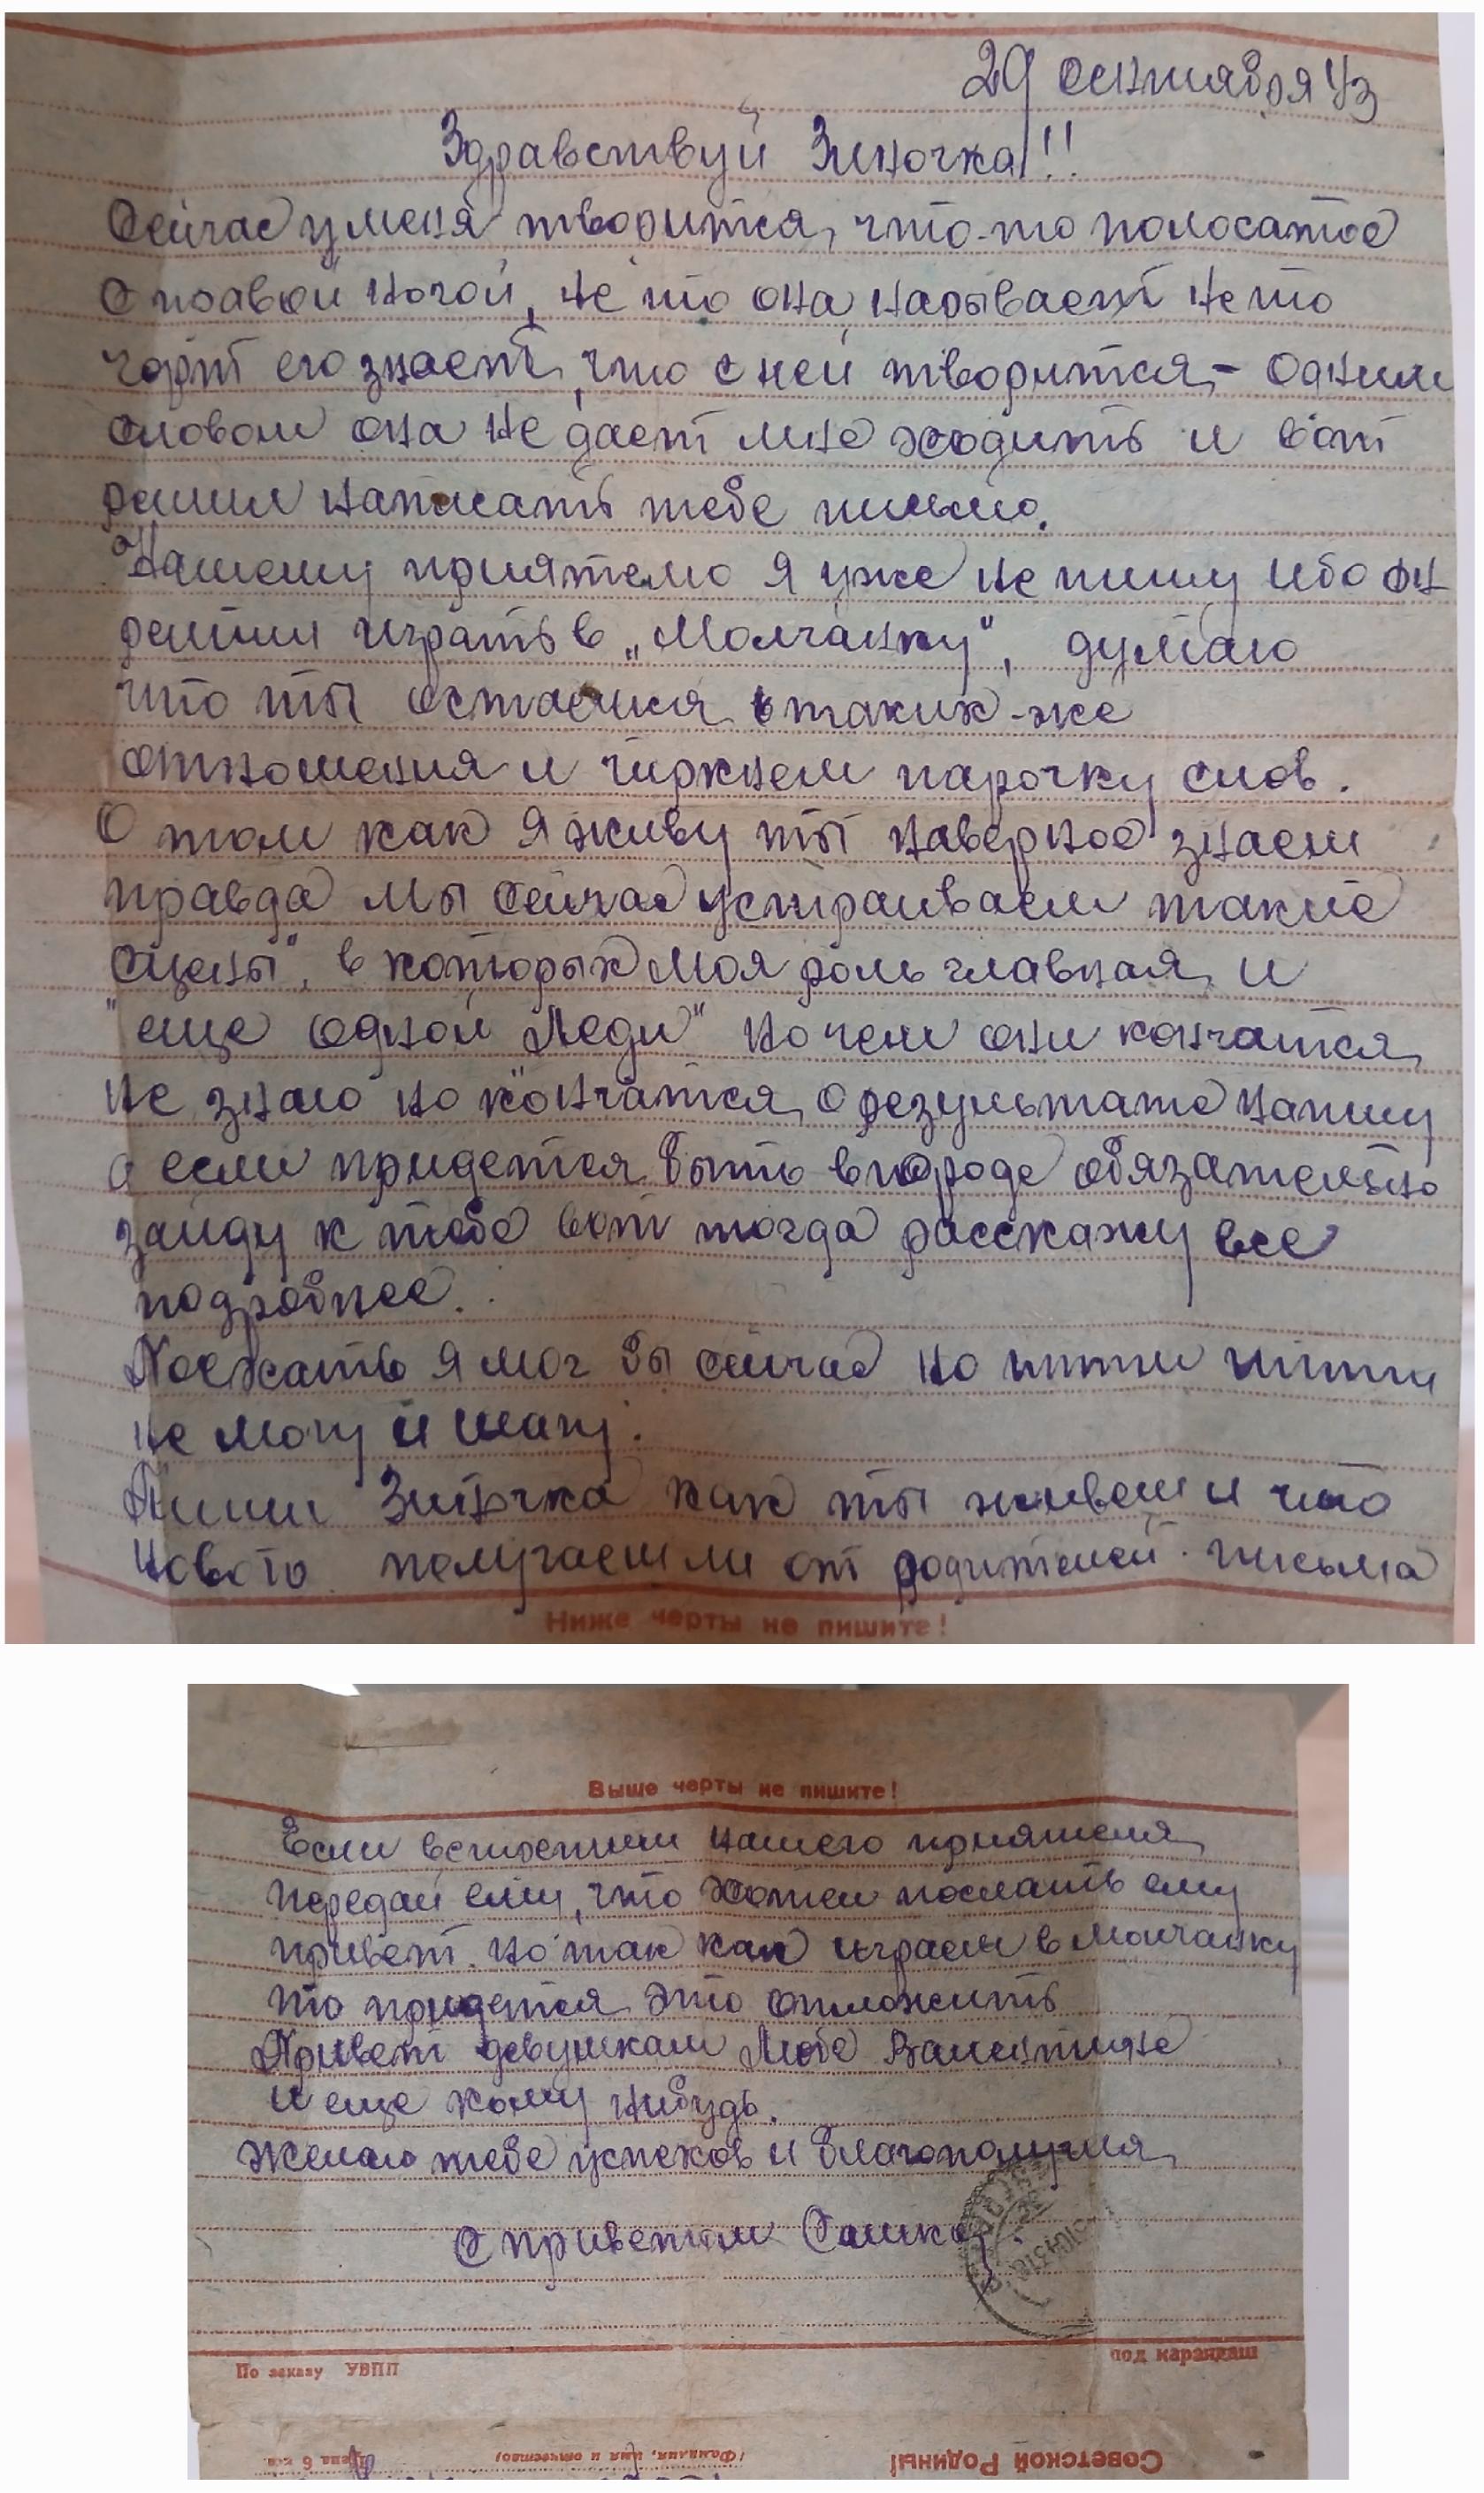 29 сентября 43
Здравствуй Зиночка!!
Сейчас у меня творится, что-то полосатое
с правой ногой, не то она нарывает не то
чорт его знает, что с ней творится, - одним
словом она не дает мне ходить и вот
решил написать тебе письмо.
Нашему приятелю я уже не пишу ибо он
решил играть в „Молчанку", думаю
что ты остаешся в таких-же
отношения и чиркнем парочку слов.
О том как я живу ты наверное знаеш
правда мы сейчас устраиваем такие
сцены", в которых моя роль главная и
"еще одной Леди" но чем они кончатся
не знаю но кончатся, о результате напишу
а если придется быть в городе обязательно
зайду к тебе вот тогда расскажу все
подробнее.
Поехать я мог бы сейчас но итти
не могу и шагу.
Пиши Зиночка как ты живеш и что
нового получаеш ли от родителей письма
Ниже черты не пишите!
Выше черты не пишите!
Если встретиш нашего приятеля
передай ему, что хотел послать ему
привет. но так как играем в молчанку
то придется это отложить
Привет девушкам Любе Валентине
и еще кому нибудь.
Желаю тебе успехов и благополучия
С приветом Сашка
По заказу УВПП
под карандаш
Советской Родины!
(Фамилия, имя и отчество)
Цена 6 к.